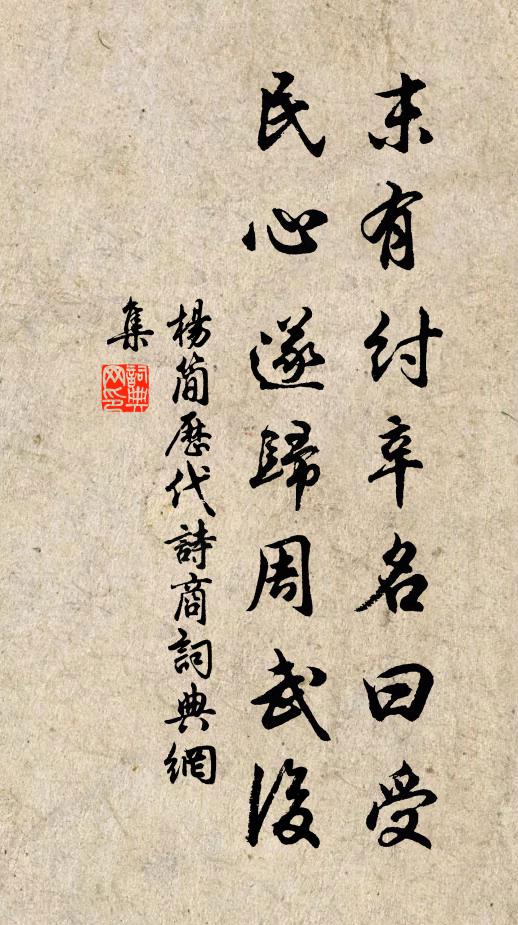 末有纣辛名曰受
民心遂歸周武後
楊簡歷代詩商詞典網
集
詞典
网印